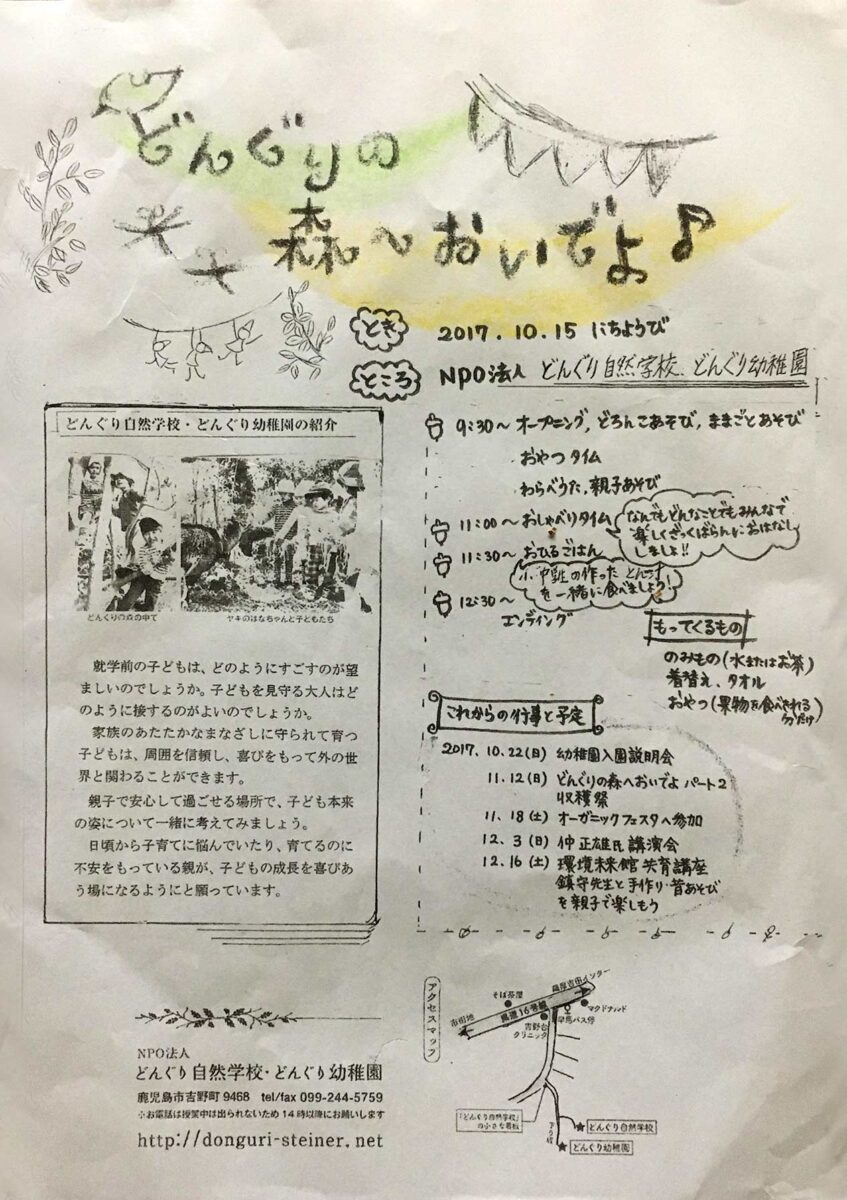 どんぐりの
森~おいでよ♪
とき 2017.10.15 にちようび
ところ NPO法人 どんぐり自然学校、どんぐり幼稚園
どんぐり自然学校・どんぐり幼稚園の紹介
どんぐりの森の中で
ヤギのはなちゃんと子どもたち
就学前の子どもは、どのようにすごすのが望
ましいのでしょうか。子どもを見守る大人はど
のように接するのがよいのでしょうか。
家族のあたたかなまなざしに守られて育つ
子どもは、周囲を信頼し、喜びをもって外の世
界と関わることができます。
親子で安心して過ごせる場所で、子ども本来
の姿について一緒に考えてみましょう。
日頃から子育てに悩んでいたり、育てるのに
不安をもっている親が、子どもの成長を喜びあ
う場になるようにと願っています。
9:30~ オープニング, どろんこあそび, ままごとあそび
おやつタイム
わらべうた, 親子あそび
11:00~ おしゃべりタイム
なんでもどんなことでもみんなで
楽しくざっくばらんにおはなし
しましょ!!
11:30~ おひるごはん
を一緒に食べましょう!
12:30~
エンディング
もってくるもの
のみもの(水またはお茶)
着替え、タオル
おやつ(果物を食べきれる
分だけ)
これからの行事と予定
2017.10.22(日) 幼稚園入園説明会
11.12(日) どんぐりの森へおいでよ パート2
収穫祭
11.18(土) オーガニックフェスタへ参加
12.3(日) 仲正雄氏講演会
12.16(土) 環境未来館共育講座
鎮守先生と手作り・昔あそび
を親子で楽しもう
NPO法人
どんぐり自然学校・どんぐり幼稚園
鹿児島市吉野町9468 tel/fax 099-244-5759
※お電話は授業中は出られないため14時以降にお願いします
http://donguri-steiner.net
アクセスマップ
薩摩吉田インター
そば茶屋
マクドナルド
県道16号線
市街地
早馬バス停
吉野台
クリニック
「どんぐり自然学校」
の小さな看板
どんぐり自然学校
どんぐり幼稚園